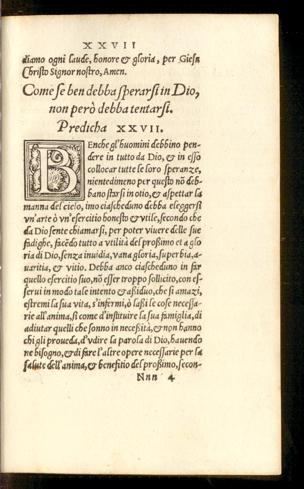 XXVII
diamo ogni laude, honore & gloria, per Giesu
Christo Signor nostro, Amen.
Come se ben debba sperarsi in Dio,
non però debba tentarsi.
Predicha XXVII.
BEnche gl'huomini debbino pen-
dere in tutto da Dio, & in esso
collocar tutte le loro speranze,
nientedimeno per questo nō deb-
bano starsi in otio, & aspettar la
manna del cielo, imo ciascheduno debba eleggersi
vn'arte ò vn'esercitio honesto & vtile, secondo che
da Dio sente chiamarsi, per poter viuere delle sue
fadighe, facēdo tutto a vtilità del proßimo et a glo
ria di Dio, senza inuidia, vana gloria, superbia, a-
uaritia, & vitio. Debba anco ciascheduno in far
quello esercitio suo, nō esser troppo sollicito, con es-
serui in modo tale intento & aßiduo, che si amazi,
estremi la sua vita, s'infermi, ò laßi le cose necessa-
rie all'anima, sì come d'instituire la sua famiglia, di
adiutar quelli che sonno in neceßità, & non hanno
chi gli proueda, d'vdire la parola di Dio, hauendo
ne bisogno, & di fare l'altre opere necessarie per la
salute dell'anima, & benefitio del proßimo, secon-
Nnn 4